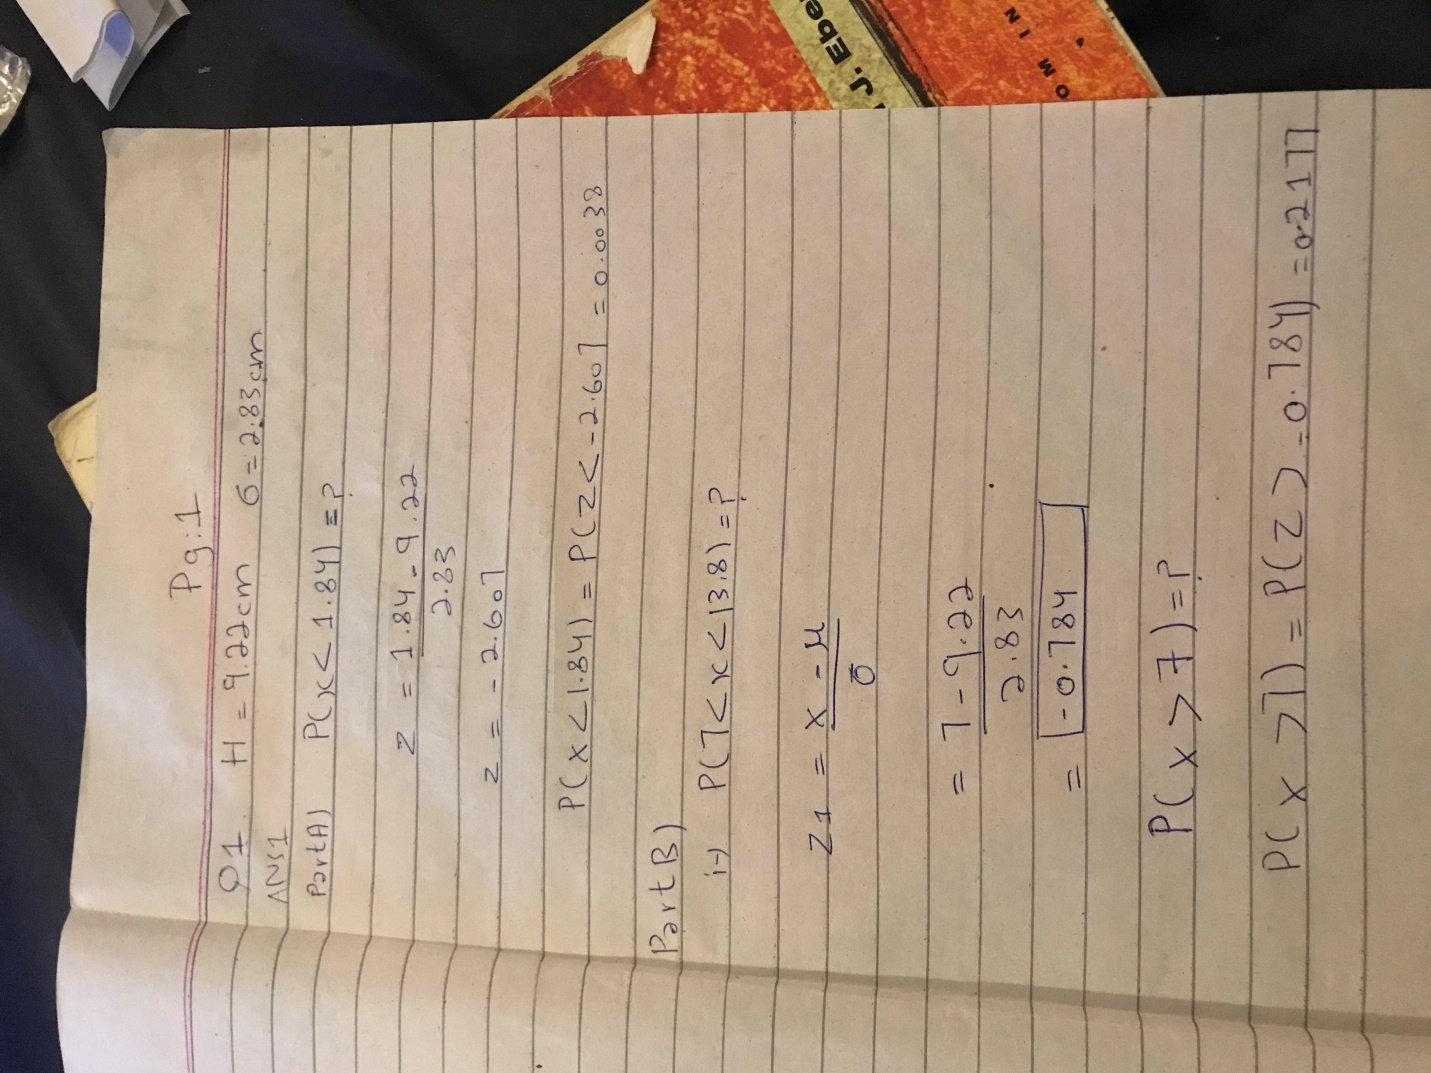 Pg:1
Q1. H = 9.22cm 6=2.83cm
ANS1
PartA) P(x<1.84)=?
z = 1.84-9.22
2.83
z = -2.607
P(x<1.84) = P(z<-2.607 = 0.0038
Part B)
i-) P(7<x<13.8)=?
z1 = x-μ
σ
= 7-9.22
2.83
= -0.784
P(x>7)=?
P(x>7) = P(z>-0.784) = 0.2177
J. Ebe
OMIN